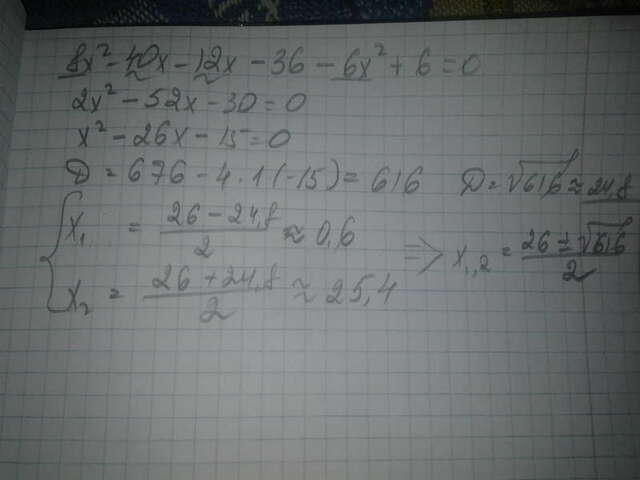 8x² - 40x - 12x - 36 - 6x² + 6 = 0
2x² - 52x - 30 = 0
x² - 26x - 15 = 0
D = 676 - 4 · 1 (-15) = 616 D = √616 ≈ 24,8
x₁ = (26 - 24,8)/2 ≈ 0,6
x₂ = (26 + 24,8)/2 ≈ 25,4
⇒ x₁,₂ = (26 ± √616)/2